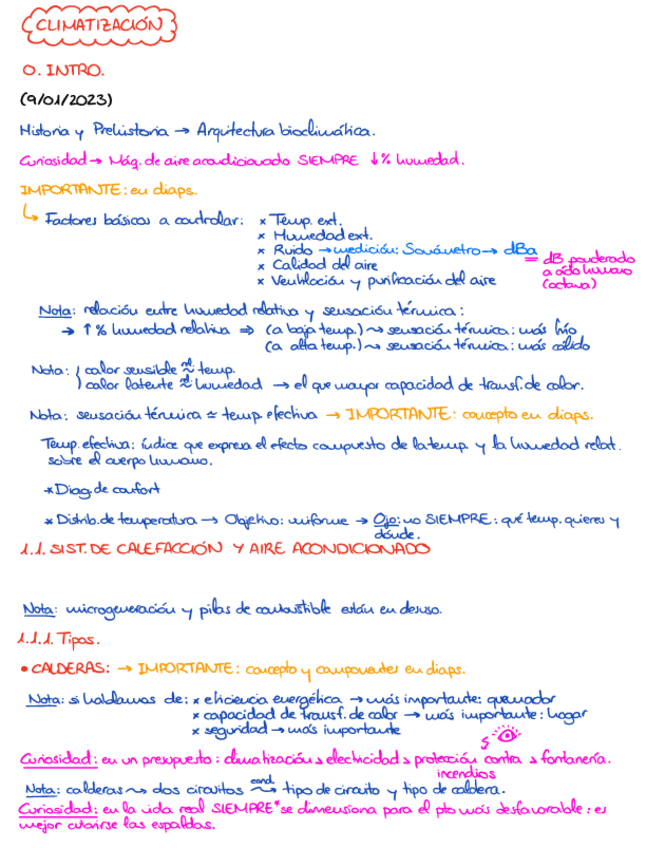 CLIMATIZACIÓN
0. INTRO.
(9/01/2023)
Historia y Prehistoria → Arquitectura bioclimática.
Curiosidad → Máq. de aire acondicionado SIEMPRE ↓% humedad.
IMPORTANTE: en diaps.
↳ Factores básicos a controlar: × Temp. ext.
× Humedad ext.
× Ruido → medición: Sonómetro → dBa = dB ponderado a oído humano (octava)
× Calidad del aire
× Ventilación y purificación del aire
Nota: relación entre humedad relativa y sensación térmica:
→ ↑% humedad relativa ⇒ (a baja temp.) ↝ sensación térmica: más frío
(a alta temp.) ↝ sensación térmica: más cálido
Nota: calor sensible ≈ temp.
calor latente ≈ humedad → el que mayor capacidad de transf. de calor.
Nota: sensación térmica ≃ temp. efectiva → IMPORTANTE: concepto en diaps.
Temp. efectiva: índice que expresa el efecto compuesto de la temp. y la humedad relat.
sobre el cuerpo humano.
* Diag. de confort
* Distrib. de temperatura → Objetivo: uniforme → Ojo: no SIEMPRE: qué temp. quieres y
dónde.
1.1. SIST. DE CALEFACCIÓN Y AIRE ACONDICIONADO
Nota: microgeneración y pilas de combustible están en desuso.
1.1.1. Tipos.
• CALDERAS: → IMPORTANTE: concepto y componentes en diaps.
Nota: si hablamos de: × eficiencia energética → más importante: quemador
× capacidad de transf. de calor → más importante: hogar
× seguridad → más importante
Curiosidad: en un presupuesto: climatización > electricidad > protección contra incendios > fontanería.
Nota: calderas ↝ dos circuitos cond ↝ tipo de circuito y tipo de caldera.
Curiosidad: en la vida real SIEMPRE* se dimensiona para el pto más desfavorable: es
mejor cubrirse las espaldas.